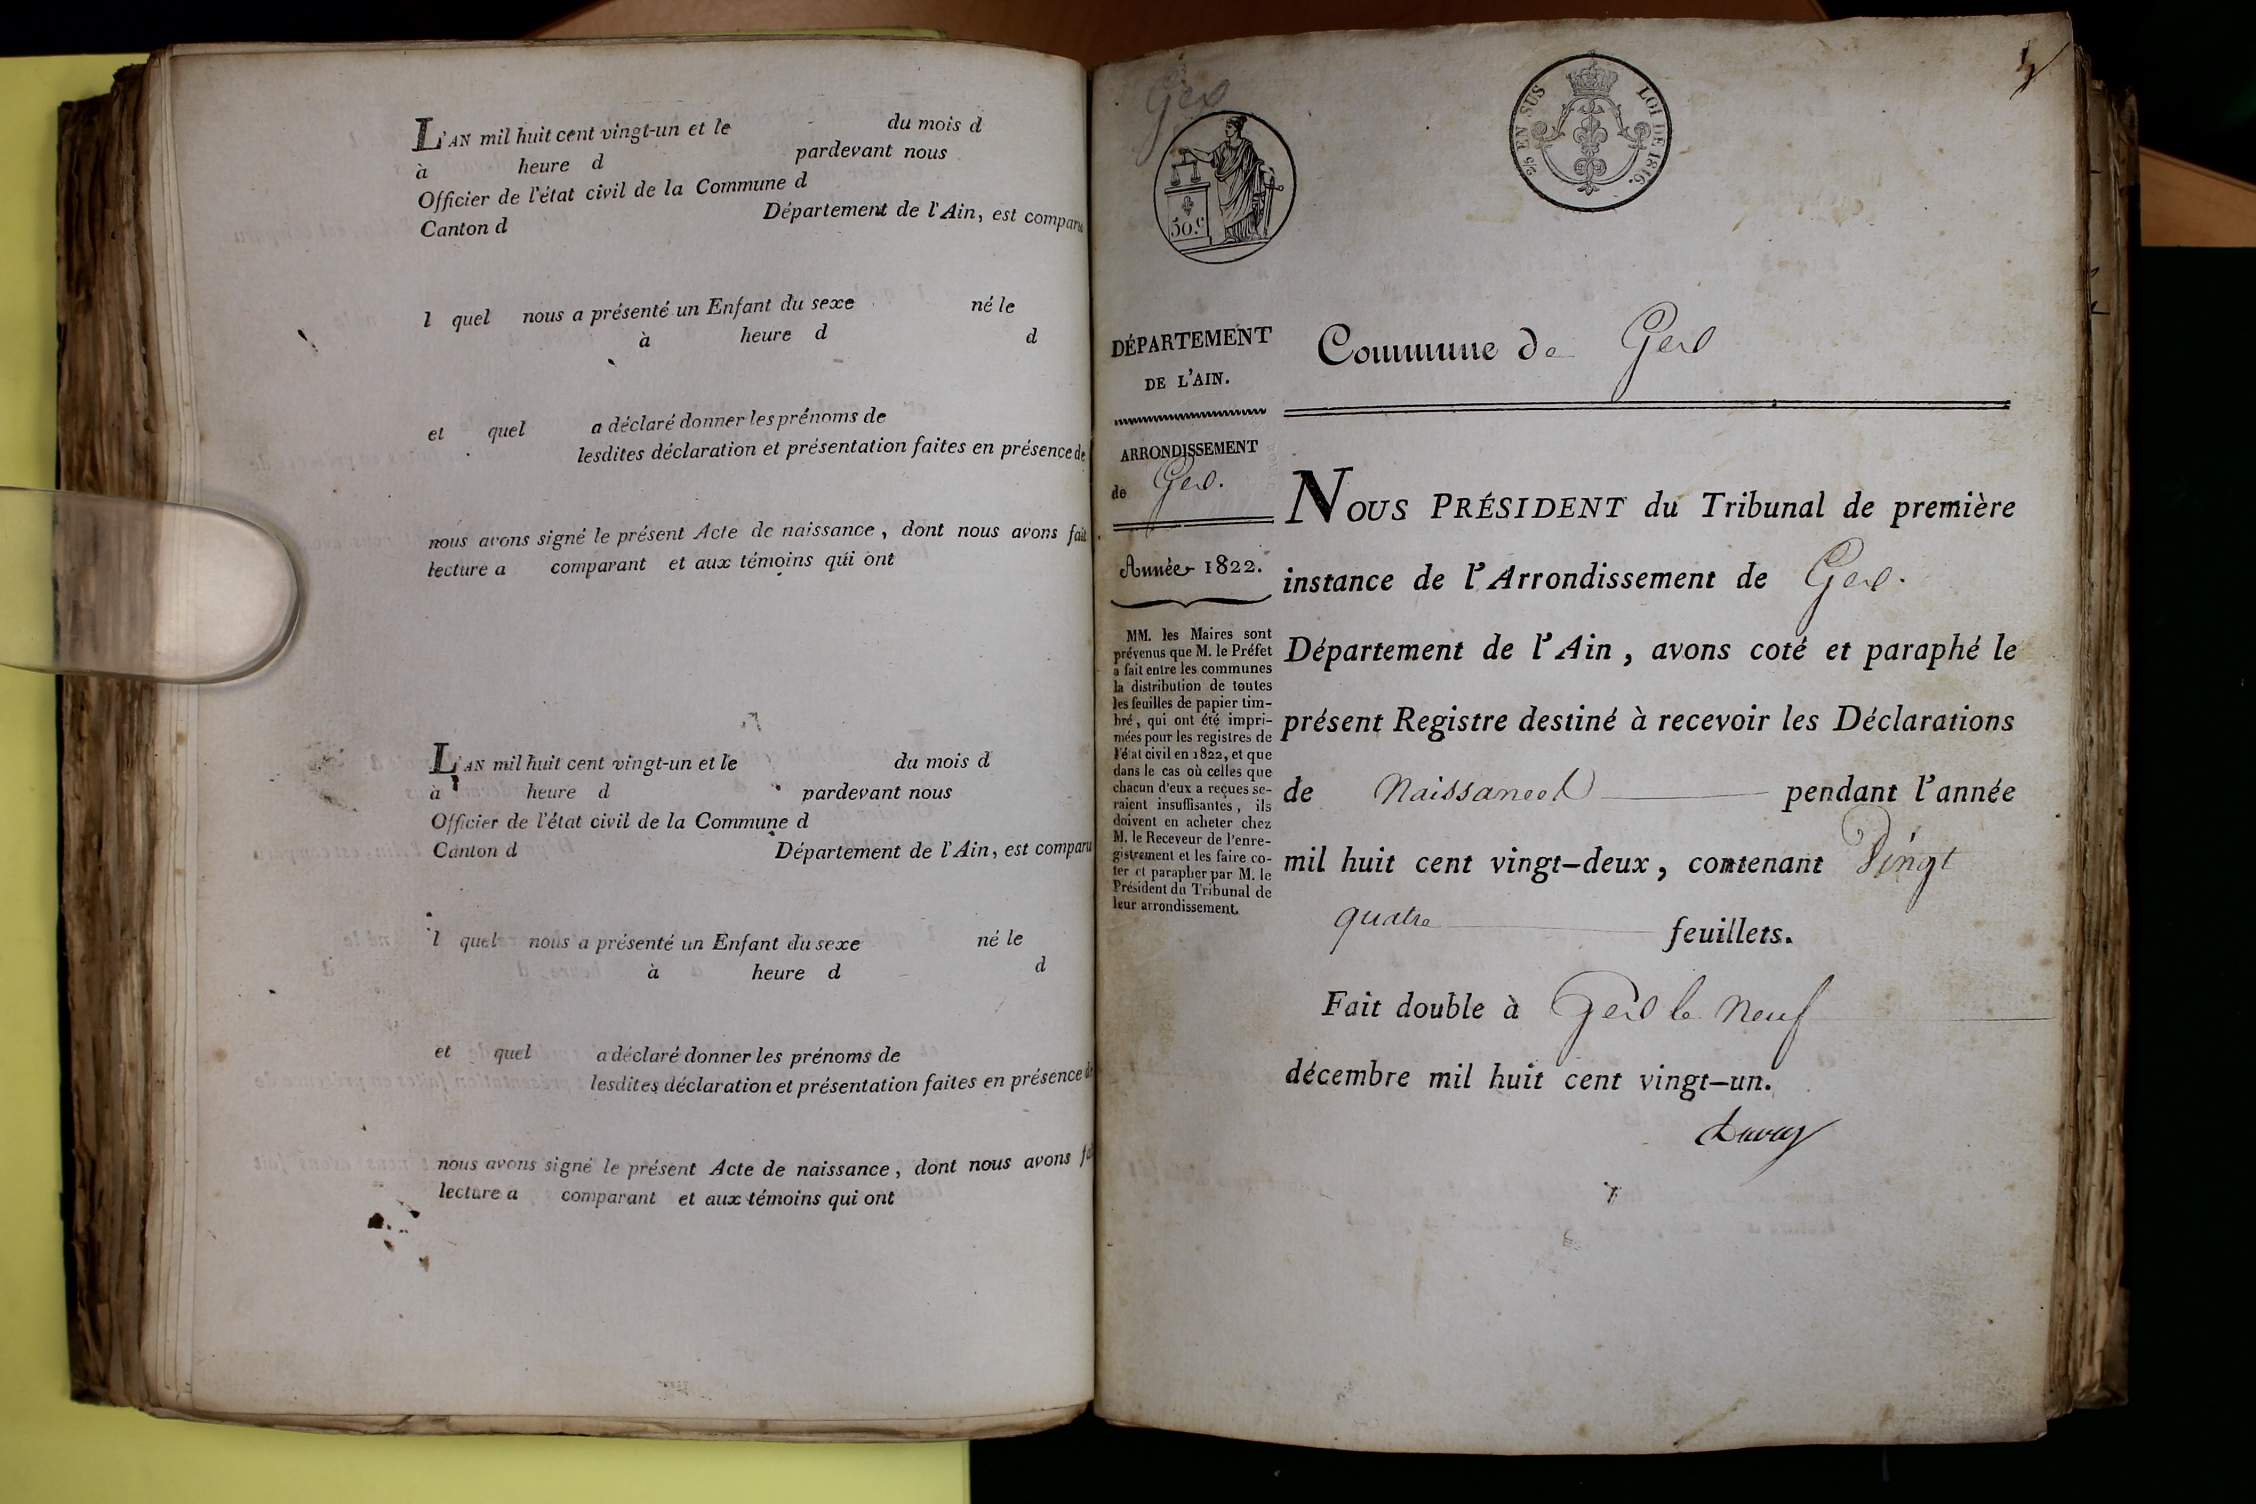 L'AN mil huit cent vingt-un et le du mois d
à heure d pardevant nous
Officier de l'état civil de la Commune d
Canton d Département de l'Ain, est comparu
l quel nous a présenté un Enfant du sexe né le
à heure d d
et quel a déclaré donner les prénoms de
lesdites déclaration et présentation faites en présence de
nous avons signé le présent Acte de naissance, dont nous avons fait
lecture a comparant et aux témoins qui ont
L'AN mil huit cent vingt-un et le du mois d
à heure d pardevant nous
Officier de l'état civil de la Commune d
Canton d Département de l'Ain, est comparu
l quel nous a présenté un Enfant du sexe né le
à heure d d
et quel a déclaré donner les prénoms de
lesdites déclaration et présentation faites en présence de
nous avons signé le présent Acte de naissance, dont nous avons fai
lecture a comparant et aux témoins qui ont
Gex
50.c
2/5 EN SUS LOI DE 1816.
DÉPARTEMENT
DE L'AIN.
ARRONDISSEMENT
de Gex.
Année 1822.
MM. les Maires sont
prévenus que M. le Préfet
a fait entre les communes
la distribution de toutes
les feuilles de papier tim-
bré, qui ont été impri-
mées pour les registres de
l'état civil en 1822, et que
dans le cas où celles que
chacun d'eux a reçues se-
raient insuffisantes, ils
doivent en acheter chez
M. le Receveur de l'enre-
gistrement et les faire co-
ter et parapher par M. le
Président du Tribunal de
leur arrondissement.
Commune de Gex
NOUS PRÉSIDENT du Tribunal de première
instance de l'Arrondissement de Gex.
Département de l'Ain, avons coté et paraphé le
présent Registre destiné à recevoir les Déclarations
de Naissances pendant l'année
mil huit cent vingt-deux, contenant Vingt
quatre feuillets.
Fait double à Gex le Neuf
décembre mil huit cent vingt-un.